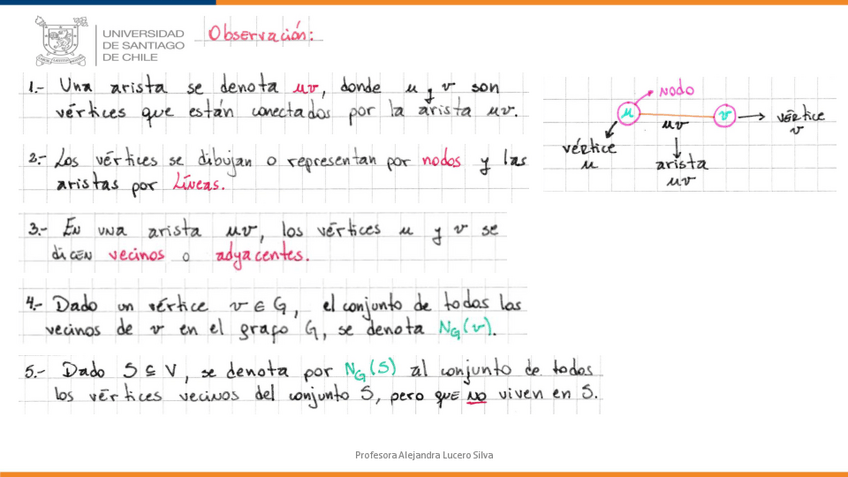 UNIVERSIDAD
DE SANTIAGO
DE CHILE
Observación:
1.- Una arista se denota uv, donde u y v son
vértices que están conectados por la arista uv.
2.- Los vértices se dibujan o representan por nodos y las
aristas por Líneas.
3.- En una arista uv, los vértices u y v se
dicen vecinos o adyacentes.
4.- Dado un vértice v ∈ G, el conjunto de todos los
vecinos de v en el grafo G, se denota N_G(v).
5.- Dado S ⊆ V, se denota por N_G(S) al conjunto de todos
los vértices vecinos del conjunto S, pero que NO viven en S.
nodo
u
v
vértice
v
uv
vértice
u
arista
uv
Profesora Alejandra Lucero Silva